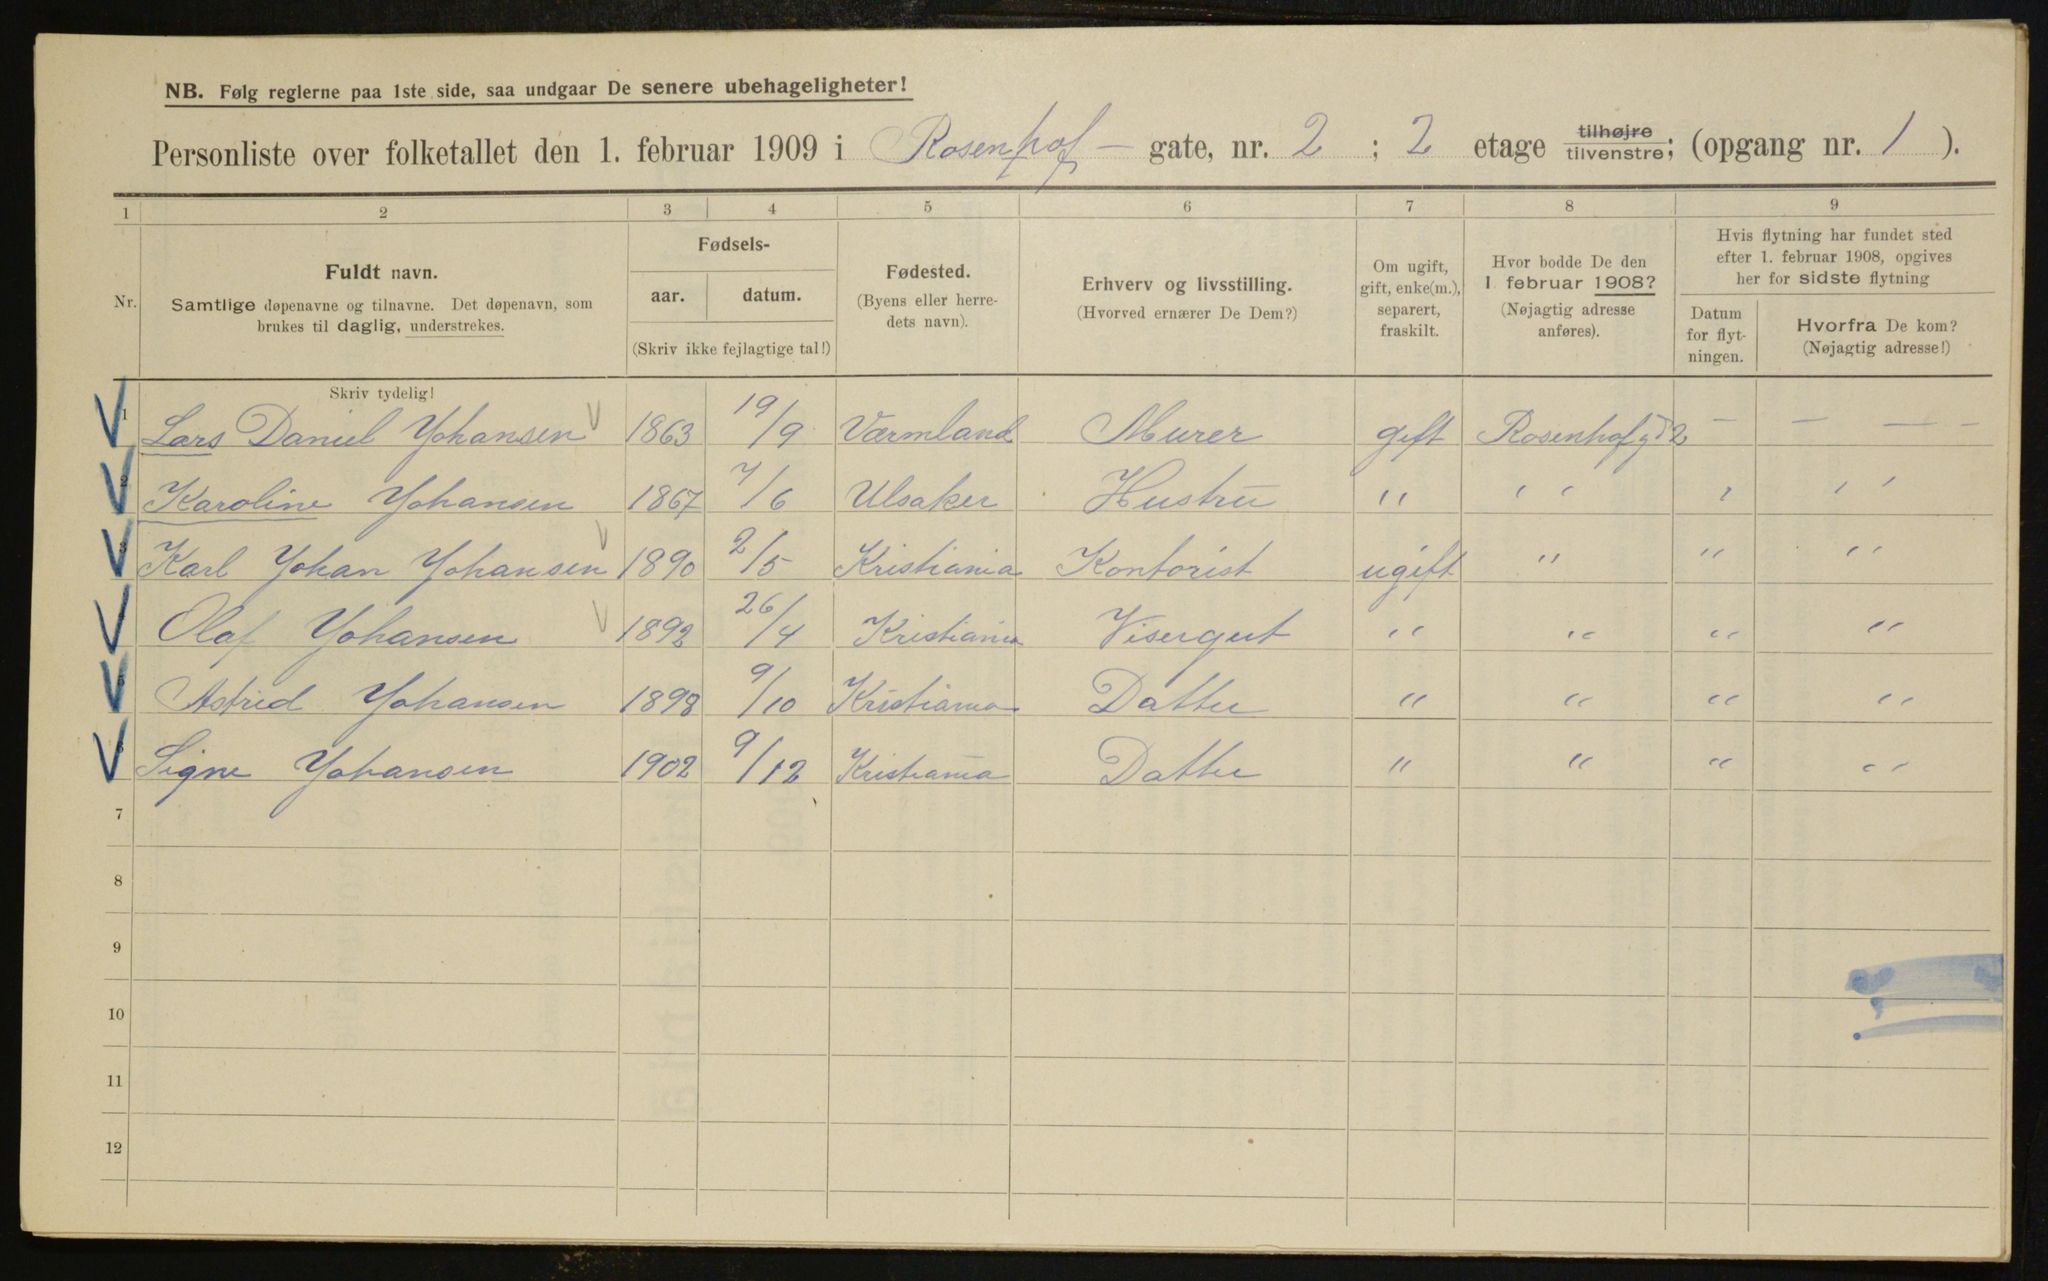 NB. Følg reglerne paa 1ste side, saa undgaar De senere ubehageligheter!
Personliste over folketallet den 1. februar 1909 i Rosenhof — gate, nr. 2 ; 2 etage tilhøjre tilvenstre; (opgang nr. 1 ).
1 2 3 4 5 6 7 8 9
Nr.
Fuldt navn.
Samtlige døpenavne og tilnavne. Det døpenavn, som
brukes til daglig, understrekes.
Fødsels-
aar. datum.
(Skriv ikke fejlagtige tal!)
Fødested.
(Byens eller herre-
dets navn).
Erhverv og livsstilling.
(Hvorved ernærer De Dem?)
Om ugift,
gift, enke(m.),
separert,
fraskilt.
Hvor bodde De den
1. februar 1908?
(Nøjagtig adresse
anføres).
Hvis flytning har fundet sted
efter 1. februar 1908, opgives
her for sidste flytning
Datum
for flyt-
ningen.
Hvorfra De kom?
(Nøjagtig adresse!)
Skriv tydelig!
1 Lars Daniel Johansen 1863 19/9 Værmland Murer gift Rosenhofgd 2 — — — —
2 Karoline Johansen 1867 7/6 Ulsaker Hustru " " " " "
3 Karl Johan Johansen 1890 2/5 Kristiania Kontorist ugift " " "
4 Olaf Johansen 1892 26/4 Kristiania Visergut " " " "
5 Astrid Johansen 1898 9/10 Kristiania Datter " " " "
6 Signe Johansen 1902 9/12 Kristiania Datter " " " "
7
8
9
10
11
12